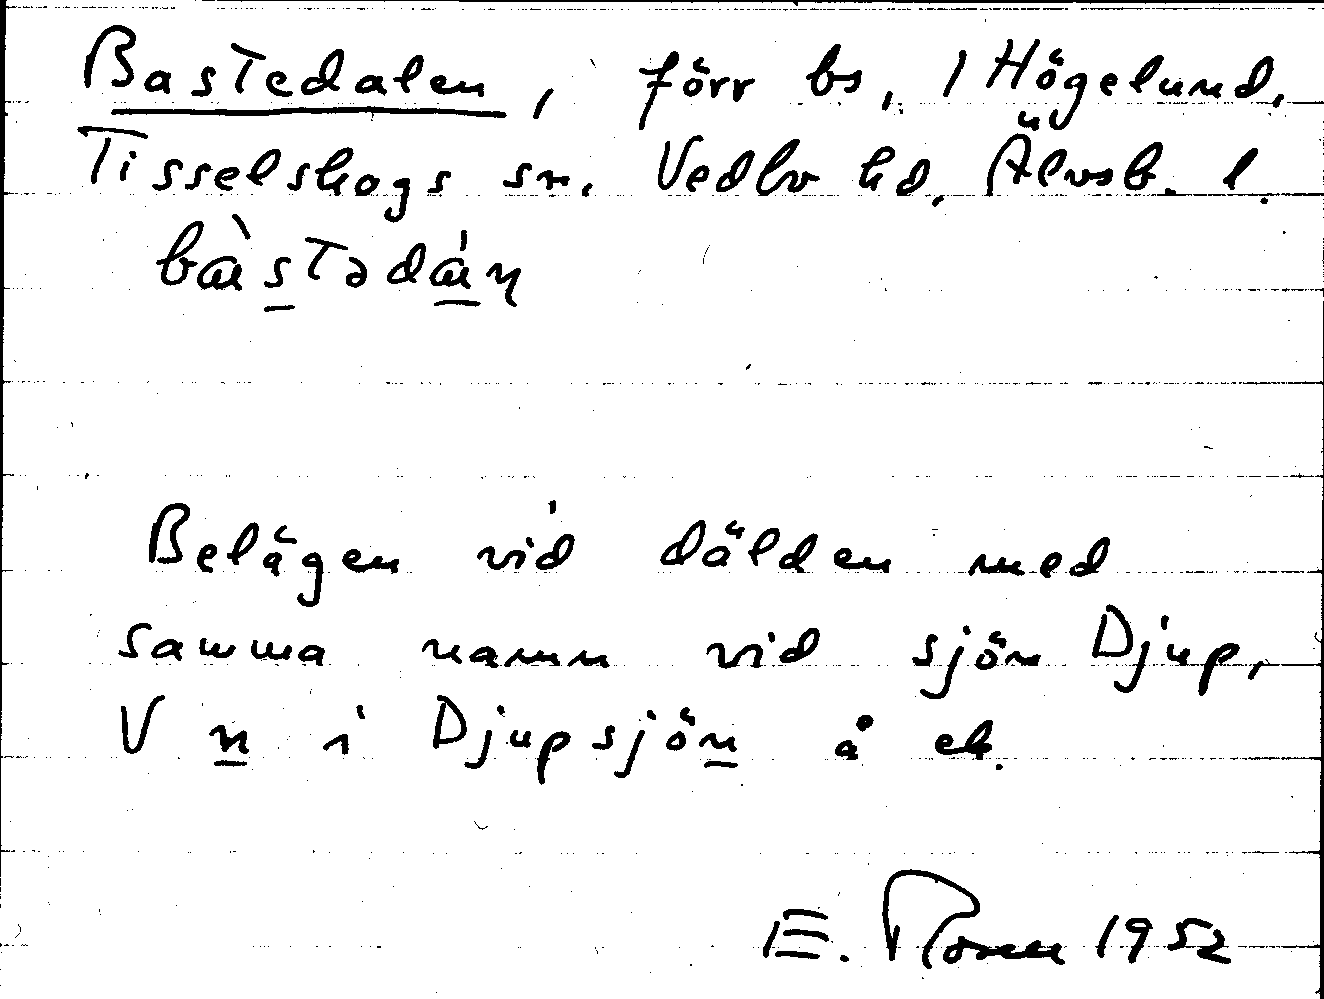 Bastedalen, förr bs, 1 Högelund,
Tisselskogs sn. Vedbo hd, Älvsb. l.
bàstədáṇ
Belägen vid dälden med
samma namn vid sjön Djup,
V n i Djupsjön å ek.
E. 1952